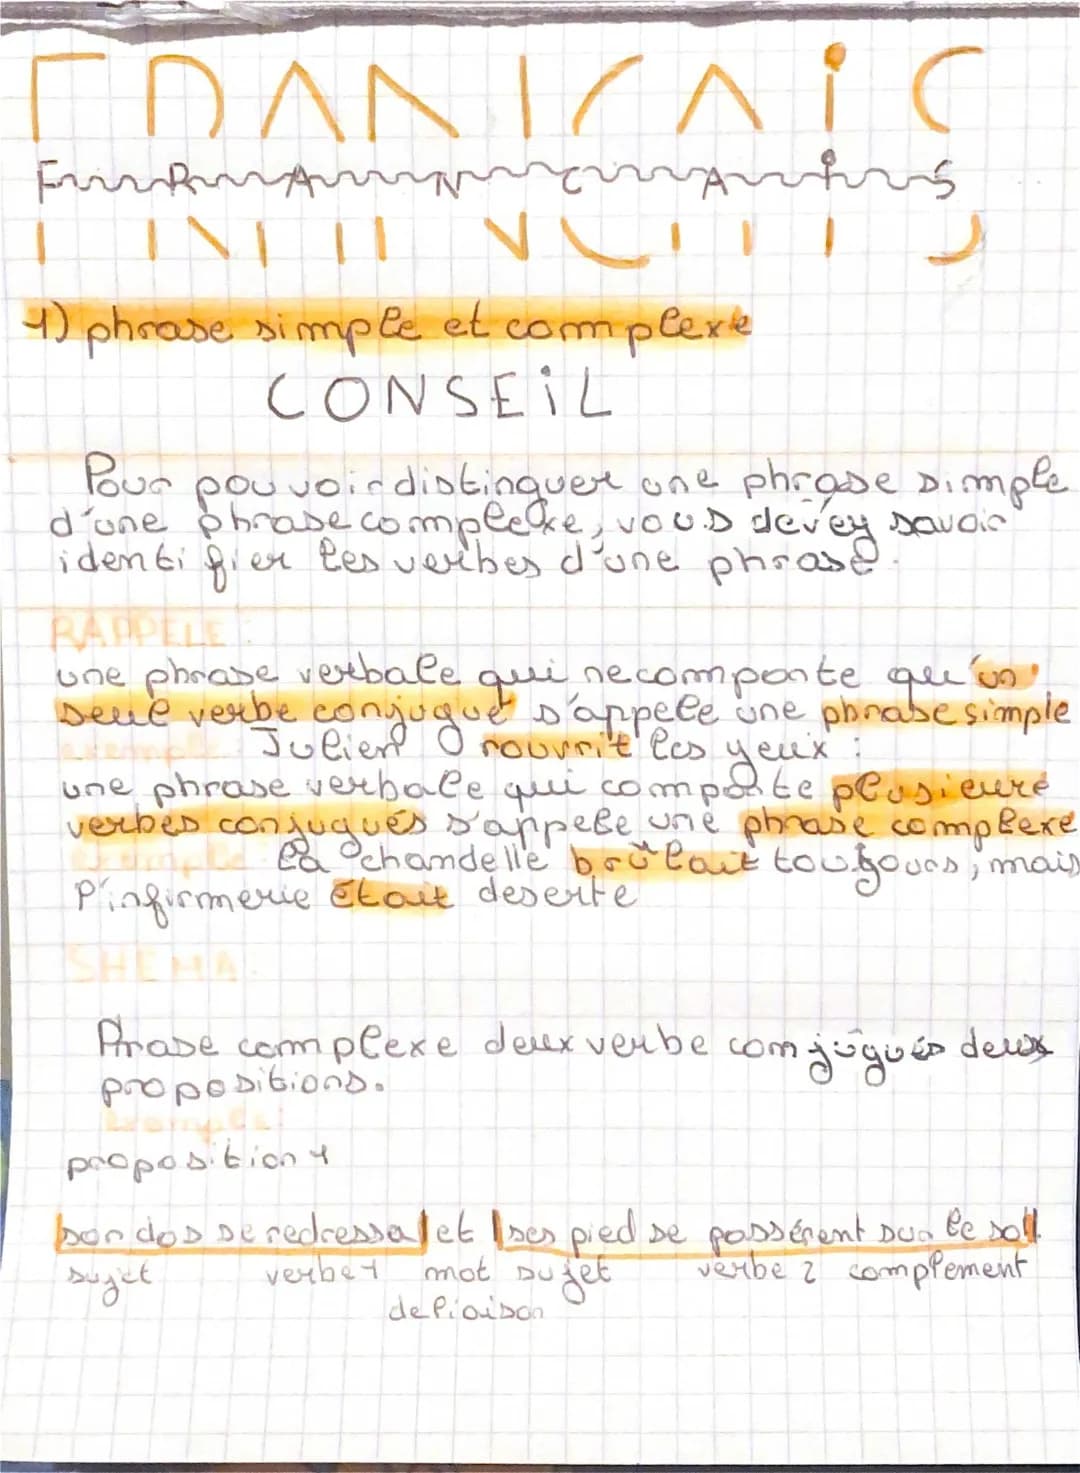 FRANCAIS
1) phrase simple et complexe
CONSEIL
Pour pouvoir distinguer une phrase simple
d'une phrase complexe, vous devey savoir
identifier les verbes d'une phrase.
RAPPELE :
une phrase verbale qui ne comporte qu'un
seul verbe conjugué s'appele une phrase simple
exemple : Julien rouvrit les yeux :
une phrase verbale qui comporte plusieurs
verbes conjugués s'appele une phrase complexe
exemple : La chandelle brûlait toujours, mais
l'infirmerie était deserte
SHEMA :
Phrase complexe deux verbe comjugués deux
propositions.
Exemple :
proposition 1
son dos se redressa et ses pied se possérent sur le sol.
sujet verbe 1 mot sujet verbe 2 complement
de liaison